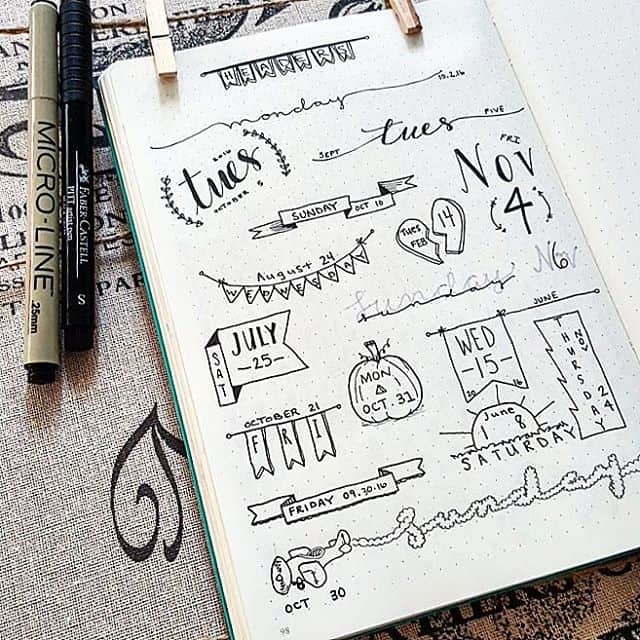 HEADERS
monday
10.2.16
2016
tues
OCTOBER 5
SEPT
tues
FIVE
FRI
Nov
4
SUNDAY
OCT 10
TUES
FEB
14
August 24
WEDNESDAY
Sunday
Nov 6
JULY
-25-
SAT
MON
OCT 31
JUNE
WED
-15-
20 16
THURSDAY
NOV 24
OCTOBER 21
FRI
June
1 8
SATURDAY
FRIDAY 09.30.16
Sunday
OCT 30
98
MICRO-LINE
.25mm
FABER-CASTELL
PITT artist pen
S